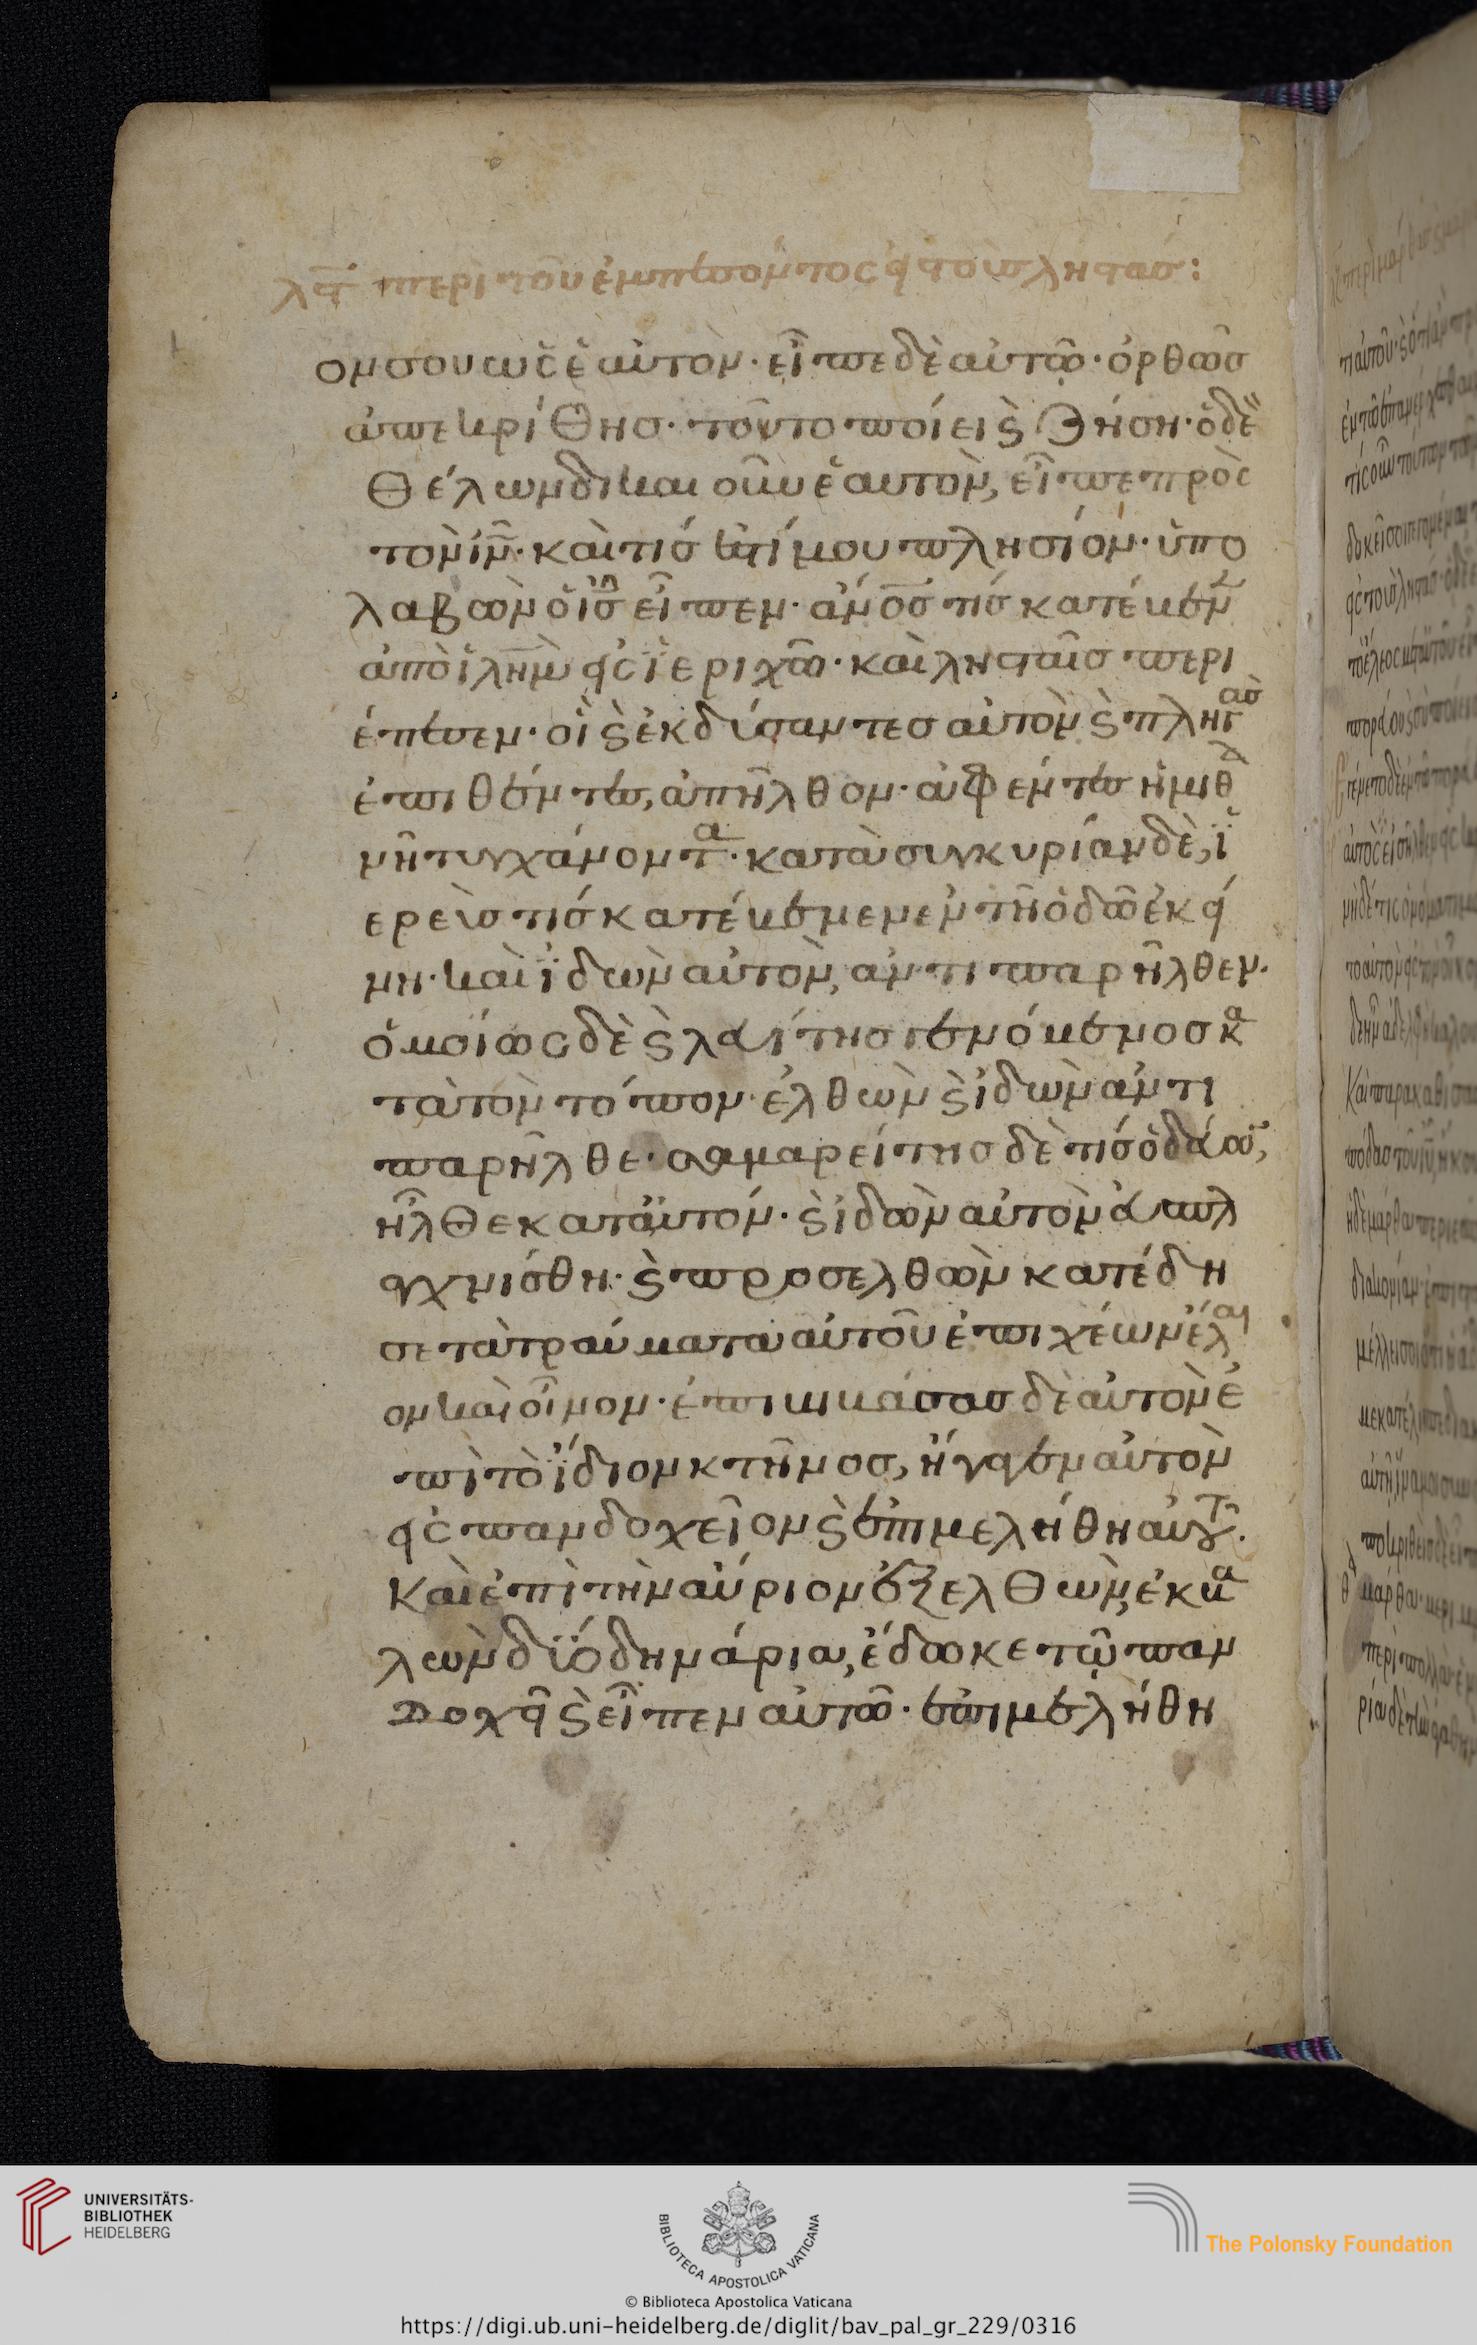 λς̅ περὶ τοῦ ἐμπεσόντος εἰς τοὺς ληστάς:
ον σου ὡς ἑαυτόν· εἶπε δὲ αὐτῷ· ὀρθῶς
ἀπεκρίθης· τοῦτο ποίει ϗ ζήση· ὁ δὲ
θέλων δικαιοῦν ἑαυτὸν, εἶπε πρὸς
τὸν ιν̅· καὶ τίς ἐστί μου πλησίον· ὑπο
λαβὼν ὁ ις̅ εἶπεν· ανος̅ τίς κατέβαινεν
ἀπὸ ιλημ̅ εἰς ϊεριχῶ· καὶ λησταῖς περι
έπεσεν· οἳ ϗ ἐκδύσαντες αὐτὸν ϗ πληγὰς
ἐπιθέντες, ἀπῆλθον· ἀφέντες ἡμιθα
νῆ τυγχάνοντα· κατὰ συγκυρίαν δὲ, ϊ
ερεύς τίς κατέβαινεν ἐν τῆ ὁδῶ ἐκεί
νη· καὶ ϊδὼν αὐτὸν, ἀντιπαρῆλθεν·
ὁμοίως δὲ ϗ λευίτης γενόμενος κα
τὰ τὸν τόπον ἐλθὼν ϗ ἰδὼν ἀντι
παρῆλθε· σαμαρείτης δὲ τίς ὁδεύων,
ἦλθε κατ' αὐτόν· ϗ ἰδὼν αὐτὸν ἐσπλα
γχνίσθη· ϗ προσελθὼν κατέδη
σε τὰ τραύματα αὐτοῦ ἐπιχέων ἔλαι
ον καὶ οἶνον· ἐπιβιβάσας δὲ αὐτὸν ἐ
πὶ τὸ ἴδιον κτῆνος, ἤγαγεν αὐτὸν
εἰς πανδοχεῖον ϗ ἐπιμελήθη αὐτοῦ.
Καὶ ἐπὶ τὴν αὔριον ἐξελθὼν, ἐκβα
λὼν δύο δηνάρια, ἔδωκε τῷ παν
δοχεῖ ϗ εἶπεν αὐτῶ· ἐπιμελήθη
UNIVERSITÄTS-
BIBLIOTHEK
HEIDELBERG
BIBLIOTECA APOSTOLICA VATICANA
The Polonsky Foundation
© Biblioteca Apostolica Vaticana
https://digi.ub.uni-heidelberg.de/diglit/bav_pal_gr_229/0316